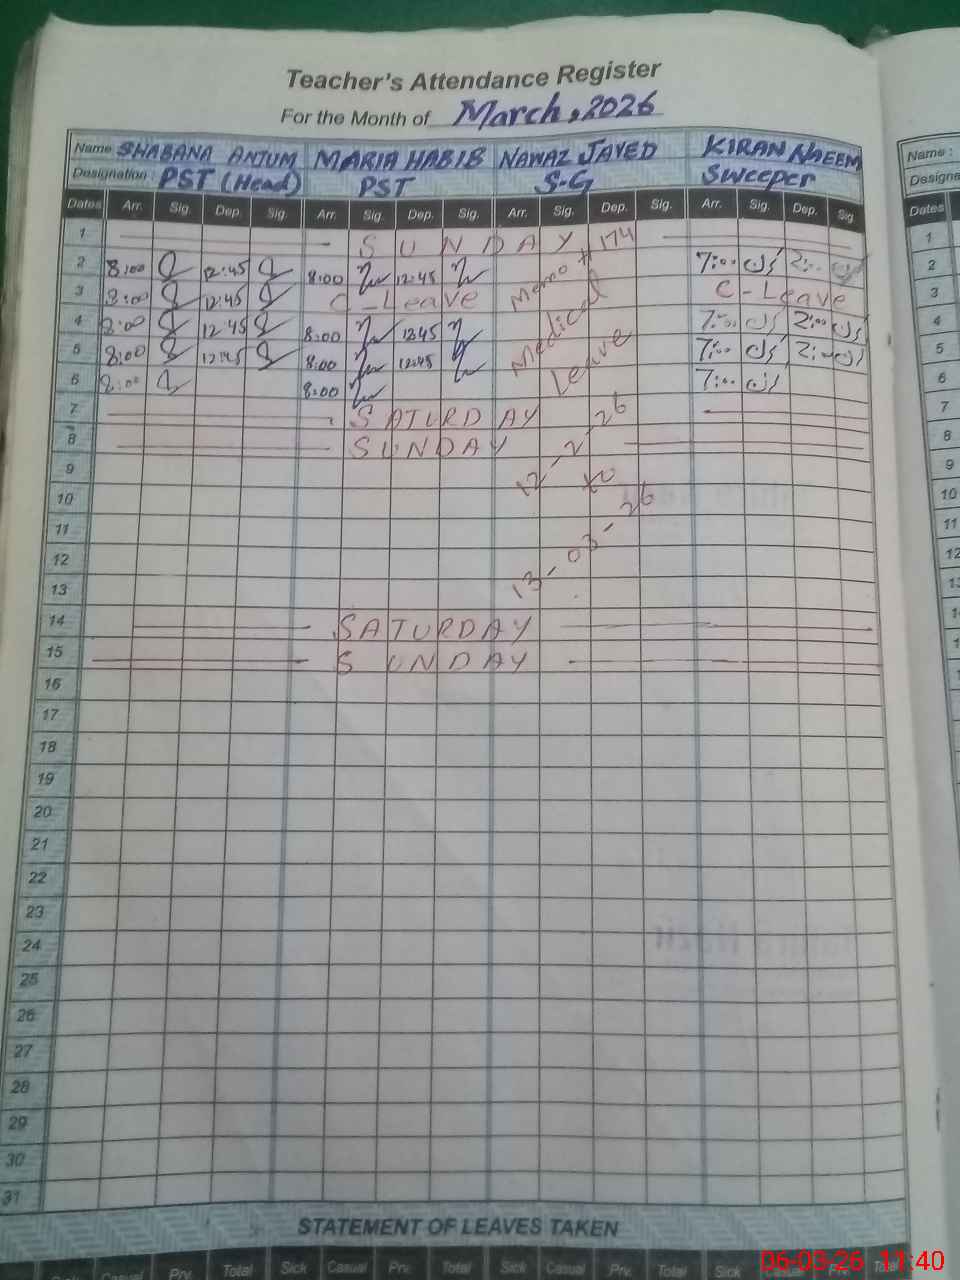 Teacher's Attendance Register
For the Month of March, 2026
Name SHABANA ANJUM MARIA HABIB NAWAZ JAVED KIRAN NAEEM
Designation : PST (Head) PST S-G Sweeper
Dates Arr. Sig. Dep. Sig. Arr. Sig. Dep. Sig. Arr. Sig. Dep. Sig. Arr. Sig. Dep. Sig
1 SUNDAY
2 8:00 12:45 8:00 12:45 Memo # 174 7:00 2:00
3 8:00 12:45 C-Leave C-Leave
4 8:00 12:45 8:00 12:45 Medical 7:00 2:00
5 8:00 12:45 8:00 12:45 Leave 7:00 2:00
6 8:00 8:00 7:00
7 SATURDAY
8 SUNDAY
9 12-2-26
10 to
11
12 13-03-26
13
14 SATURDAY
15 SUNDAY
16
17
18
19
20
21
22
23
24
25
26
27
28
29
30
31
STATEMENT OF LEAVES TAKEN
Casual Prv. Total Sick Casual Prv. Total Sick Casual Prv. Total Sick Casual Prv. Total
Name :
Designa
Dates
1
2
3
4
5
6
7
8
9
10
11
12
06-03-26 11:40